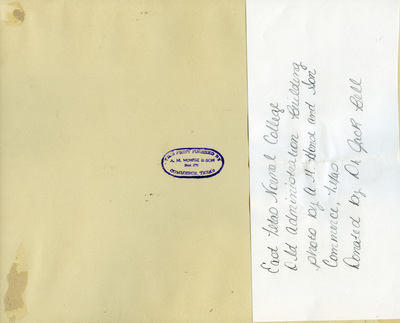 THIS PRINT FINISHED BY
A. M. HOWSE & SON
COMMERCE, TEXAS
East Texas Normal College
Old Administration Building
photo by A M Howse and Son
Commerce, Texas
Donated by Dr Jack Bell